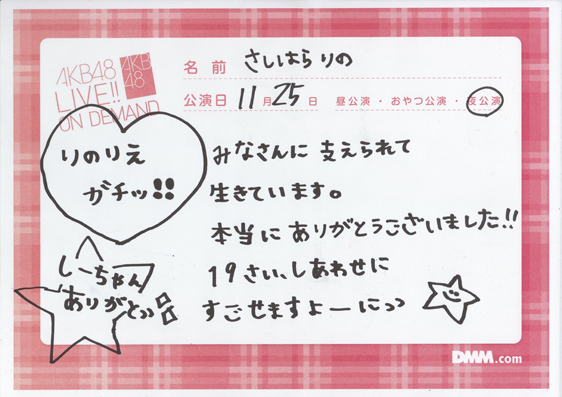 AKB48
LIVE!!
ON DEMAND
AKB
48
名前 さしはらりの
公演日 11月25日 昼公演・おやつ公演・夜公演
りのりえ
ガチッ!!
みなさんに支えられて
生きています。
本当にありがとうございました!!
19さい、しあわせに
すごせますよーにっっ
しーちゃん
ありがとっっ
DMM.com